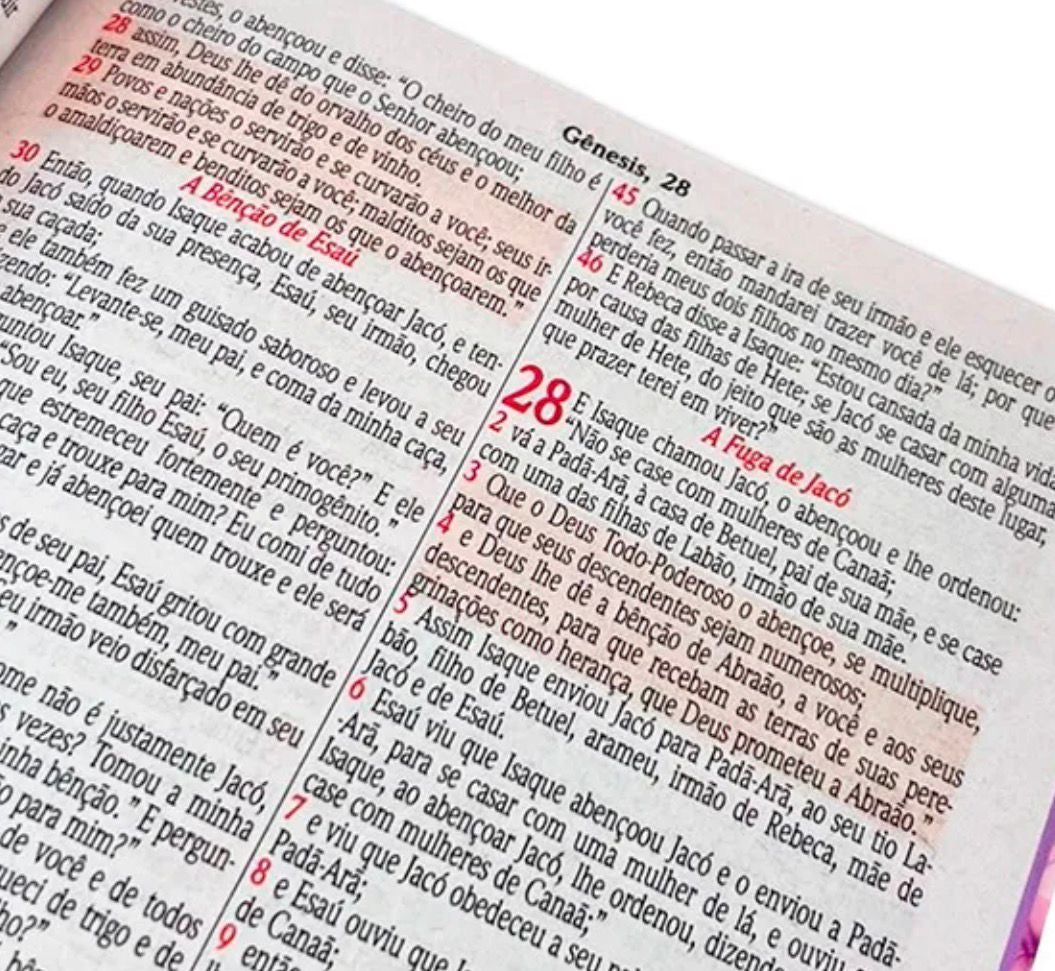 Gênesis, 28
estes, o abençoou e disse: “O cheiro do meu filho é
como o cheiro do campo que o Senhor abençoou;
28 assim, Deus lhe dê do orvalho dos céus e o melhor da
terra em abundância de trigo e de vinho.
29 Povos e nações o servirão e se curvarão a você; seus ir-
mãos o servirão e se curvarão a você; malditos sejam os que
o amaldiçoarem e benditos sejam os que o abençoarem.”
A Bênção de Esaú
30 Então, quando Isaque acabou de abençoar Jacó, e ten-
do Jacó saído da sua presença, Esaú, seu irmão, chegou
sua caçada,
e ele também fez um guisado saboroso e levou a seu
zendo: “Levante-se, meu pai, e coma da minha caça,
abençoar.”
untou Isaque, seu pai: “Quem é você?” E ele
“Sou eu, seu filho Esaú, o seu primogênito.”
que estremeceu fortemente e perguntou:
caça e trouxe para mim? Eu comi de tudo
ar e já abençoei quem trouxe e ele será
s de seu pai, Esaú gritou com grande
ençoe-me também, meu pai.”
eu irmão veio disfarçado em seu
”
ome não é justamente Jacó,
s vezes? Tomou a minha
inha bênção.” E pergun-
o para mim?”
de você e de todos
ueci de trigo e de
ho?”
45 Quando passar a ira de seu irmão e ele esquecer o
você fez, então mandarei trazer você de lá; por que
perderia meus dois filhos no mesmo dia?”
46 E Rebeca disse a Isaque: “Estou cansada da minha vid
por causa das filhas de Hete; se Jacó se casar com alguma
mulher de Hete, do jeito que são as mulheres deste lugar,
que prazer terei em viver?”
A Fuga de Jacó
28 E Isaque chamou Jacó, o abençoou e lhe ordenou:
“Não se case com mulheres de Canaã;
2 vá a Padã-Arã, à casa de Betuel, pai de sua mãe, e se case
com uma das filhas de Labão, irmão de sua mãe.
3 Que o Deus Todo-Poderoso o abençoe, se multiplique,
para que seus descendentes sejam numerosos;
4 e Deus lhe dê a bênção de Abraão, a você e aos seus
descendentes, para que recebam as terras de suas pere-
grinações como herança, que Deus prometeu a Abraão.”
5 Assim Isaque enviou Jacó para Padã-Arã, ao seu tio La-
bão, filho de Betuel, arameu, irmão de Rebeca, mãe de
Jacó e de Esaú.
6 Esaú viu que Isaque abençoou Jacó e o enviou a Padã-
-Arã, para se casar com uma mulher de lá, e ouviu
Isaque, ao abençoar Jacó, lhe ordenou, dizend
case com mulheres de Canaã;”
7 e viu que Jacó obedeceu a seu
Padã-Arã;
8 e Esaú ouviu que
de Canaã;
9 então